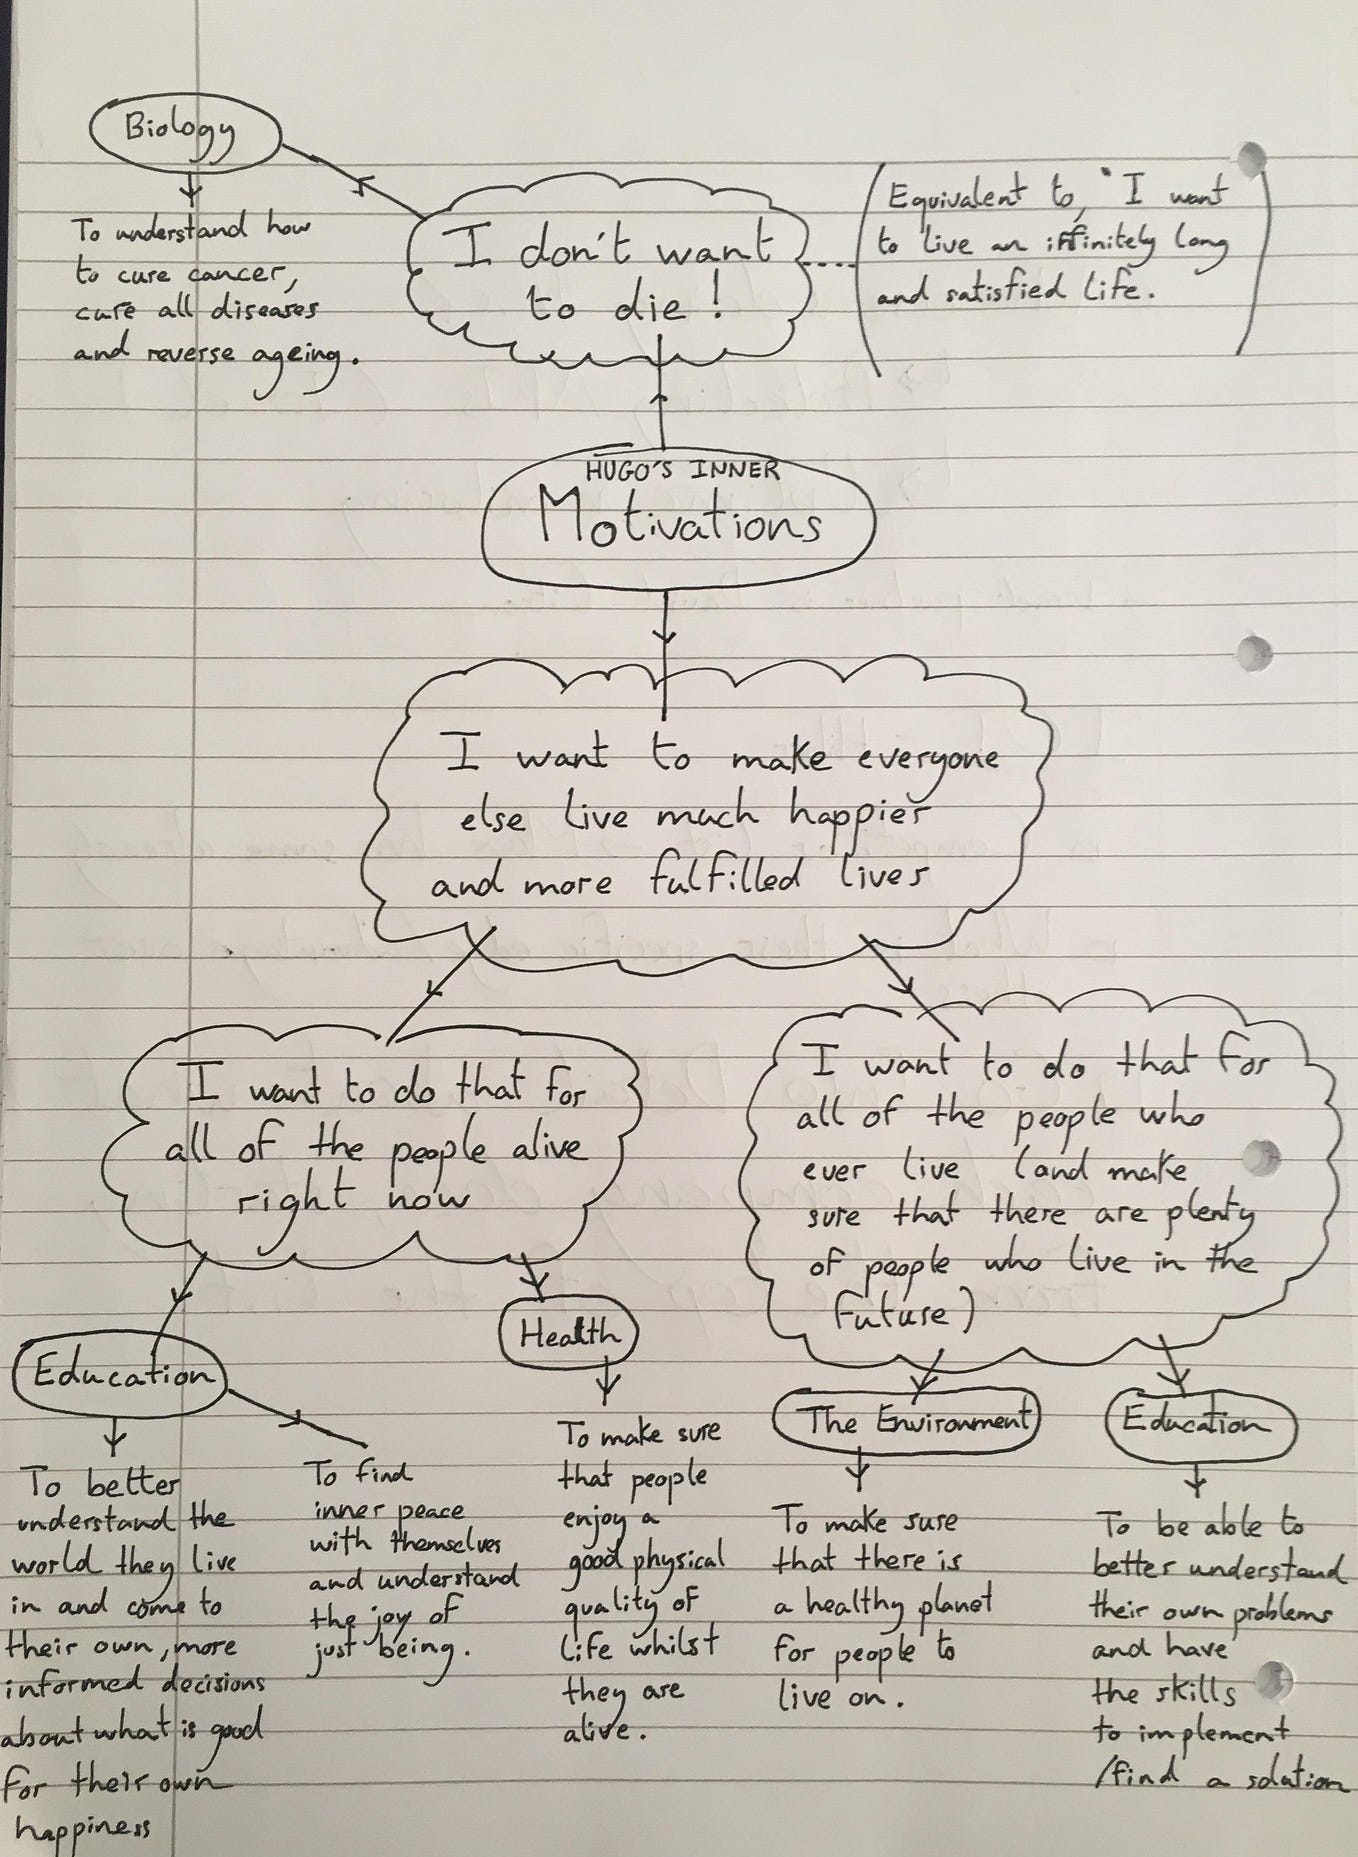 Biology
To understand how
to cure cancer,
cure all diseases
and reverse ageing.
I don't want
to die!
Equivalent to, "I want
to live an infinitely long
and satisfied life.
HUGO'S INNER
Motivations
I want to make everyone
else live much happier
and more fulfilled lives
I want to do that for
all of the people alive
right now
I want to do that for
all of the people who
ever live (and make
sure that there are plenty
of people who live in the
future)
Education
To better
understand the
world they live
in and come to
their own, more
informed decisions
about what is good
for their own
happiness
To find
inner peace
with themselves
and understand
the joy of
just being.
Health
To make sure
that people
enjoy a
good physical
quality of
life whilst
they are
alive.
The Environment
To make sure
that there is
a healthy planet
for people to
live on.
Education
To be able to
better understand
their own problems
and have
the skills
to implement
/find a solution